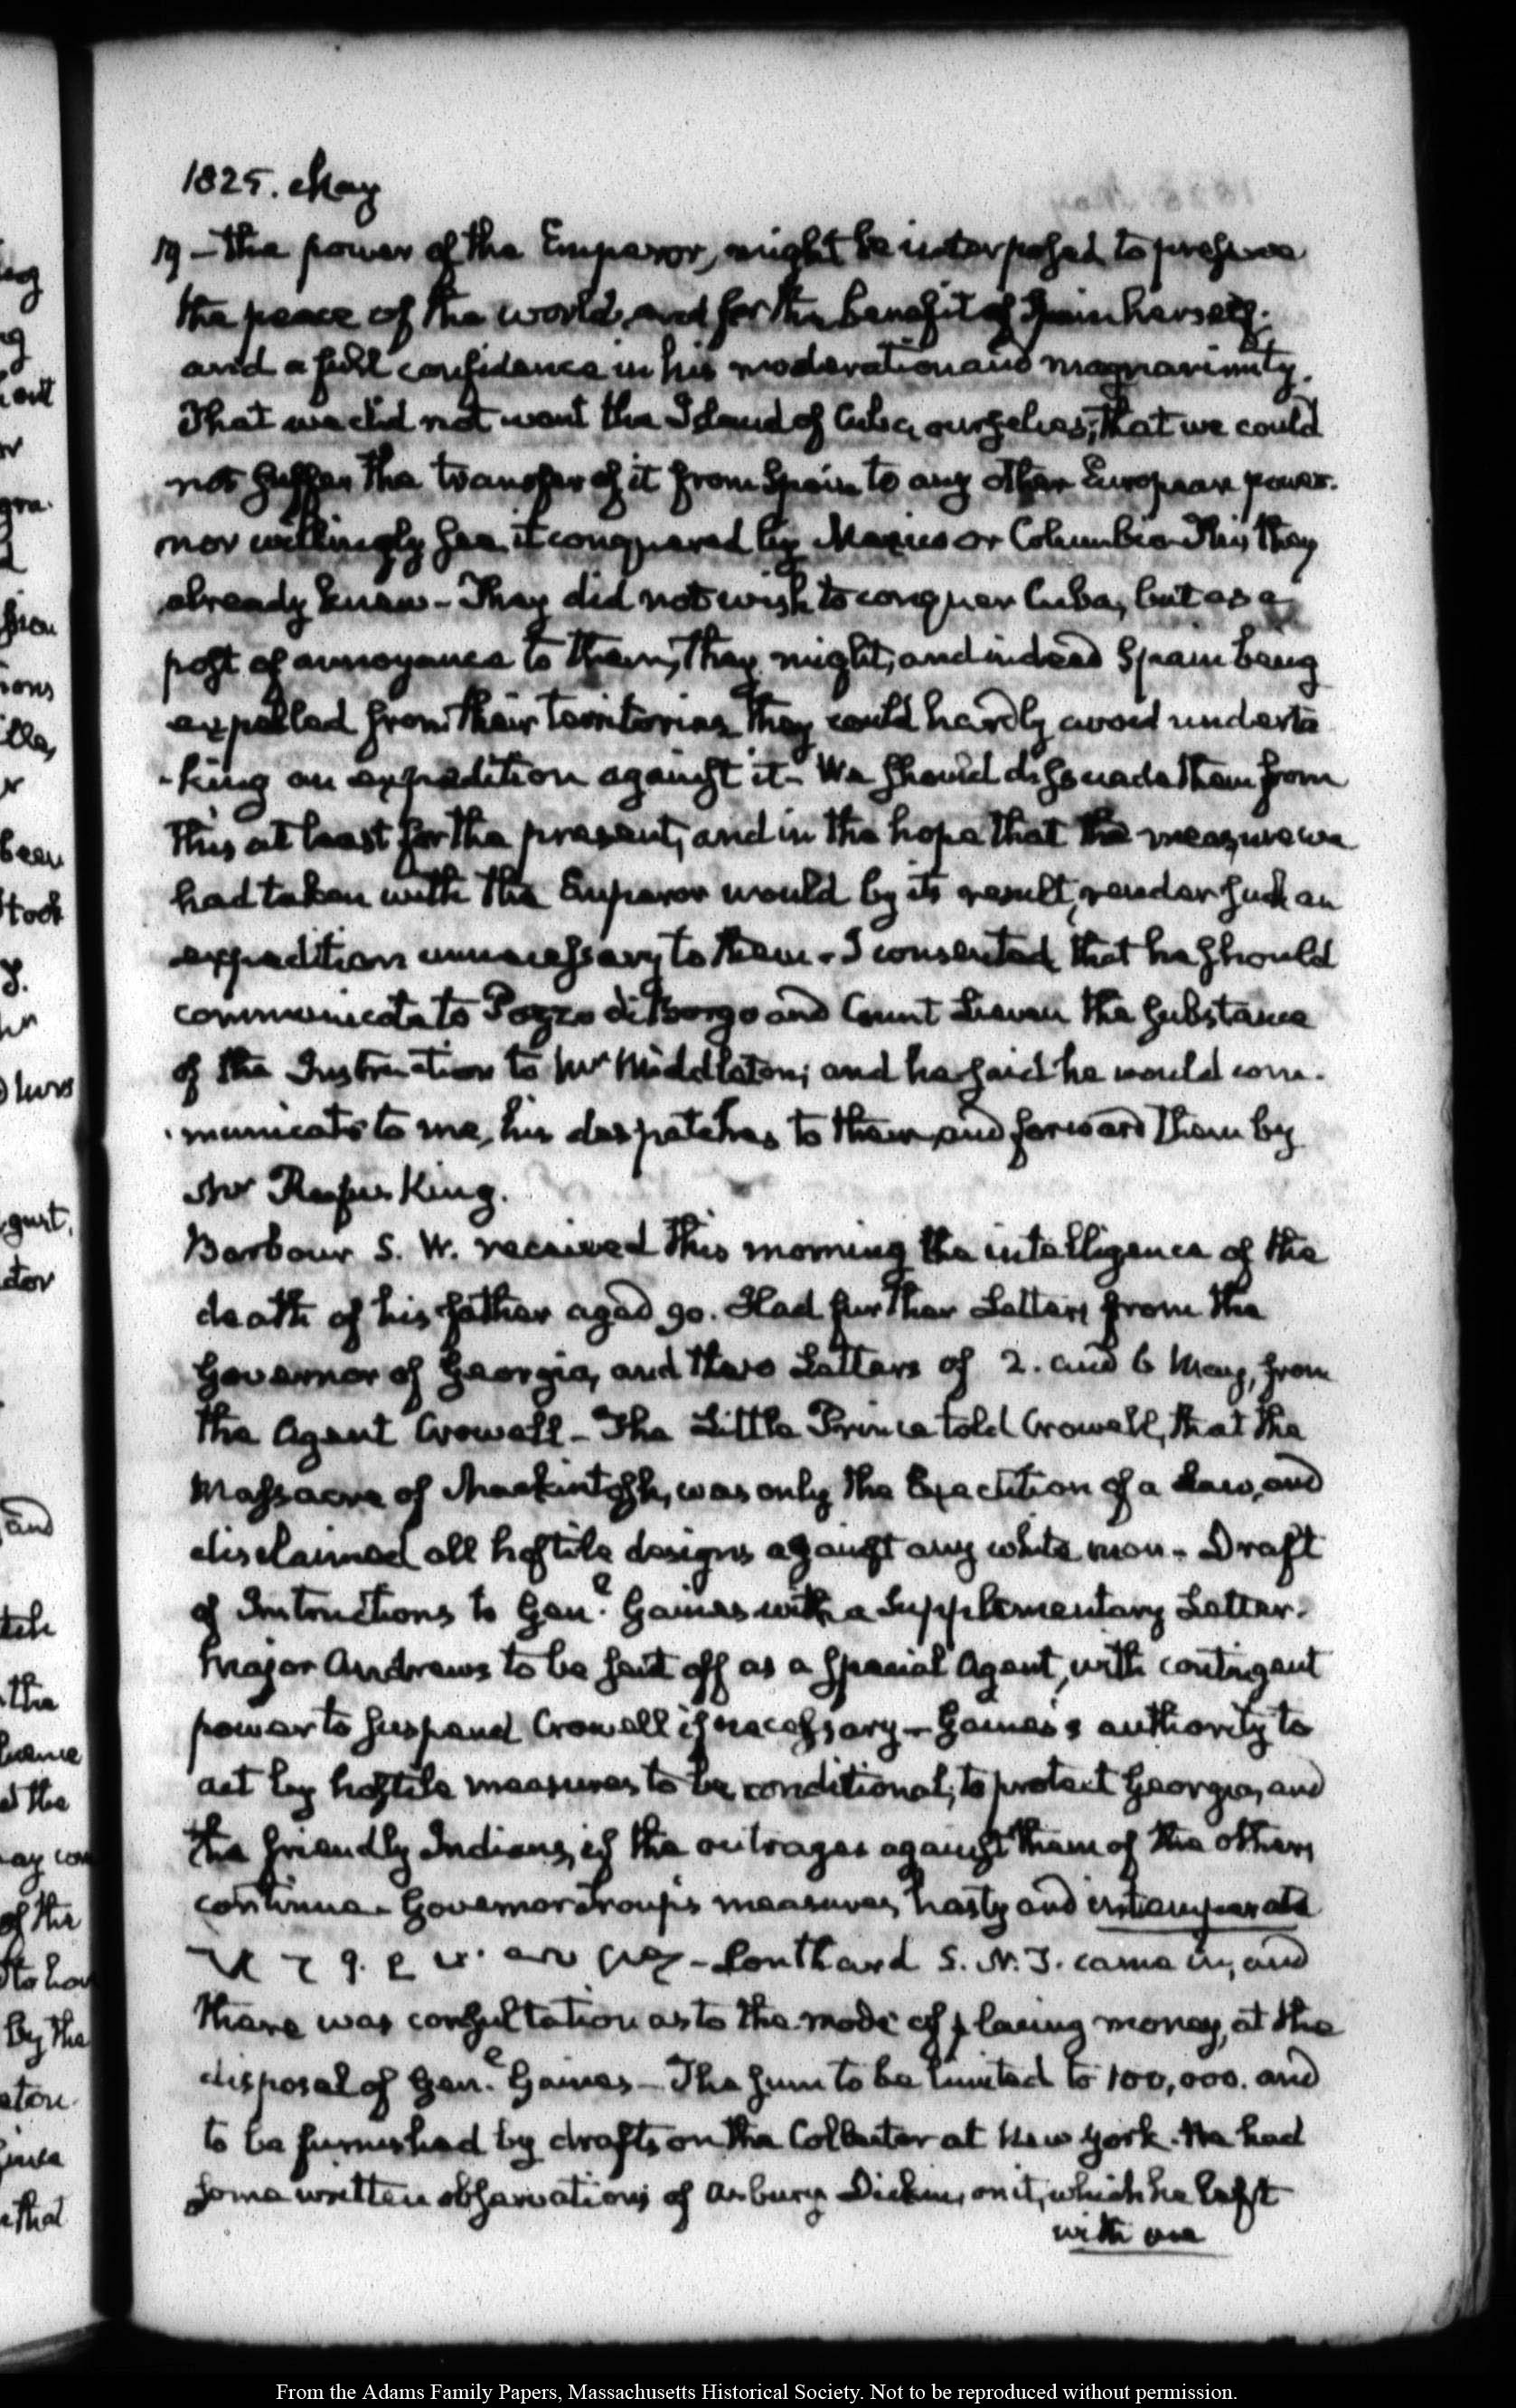 1825. May
19 — the power of the Emperor, might be interposed to preserve
the peace of the world, and for the benefit of Spain herself;
and a full confidence in his moderation and magnanimity.
That we did not want the Island of Cuba, ourselves; that we could
not suffer the transfer of it from Spain to any other European power.
nor willingly see it conquered by Mexico or Columbia. This they
already knew - They did not wish to conquer Cuba, but as a
post of annoyance to them, they might, and indeed Spain being
expelled from their territories, they could hardly avoid underta
-king an expedition against it - We should dissuade them from
this at least for the present, and in the hope that the measure we
had taken with the Emperor would by its result, render such an
expedition unnecessary to them - I consented that he should
communicate to Pozzo di Borgo and Count Lieven the substance
of the Instruction to Mr Middleton; and he said he would com-
municate to me, his despatches to them, and forward them by
Mr Rufus King.
Barbour S. W. received this morning the intelligence of the
death of his father aged 90. Had further Letters from the
Governor of Georgia, and two Letters of 2. and 6 May, from
the Agent Crowell - The Little Prince told Crowell, that the
Massacre of Mackintosh, was only the Execution of a Law, and
disclaimed all hostile designs against any white man - Draft
of Instructions to Genl. Gaines with a Supplementary Letter.
Major Andrews to be sent off as a Special Agent, with contingent
power to suspend Crowell if necessary - Gaines's authority to
act by hostile measures to be conditional; to protect Georgia, and
the friendly Indians, if the outrages against them of the others
continue - Governor Troup's measures, hasty and intemperate
- Southard S. N. J. came in, and
there was consultation as to the mode of placing money, at the
disposal of Genl. Gaines - The sum to be limited to 100,000. and
to be furnished by drafts on the Collector at New York. He had
some written observations of Asbury Dickins, on it, which he left
with me
From the Adams Family Papers, Massachusetts Historical Society. Not to be reproduced without permission.